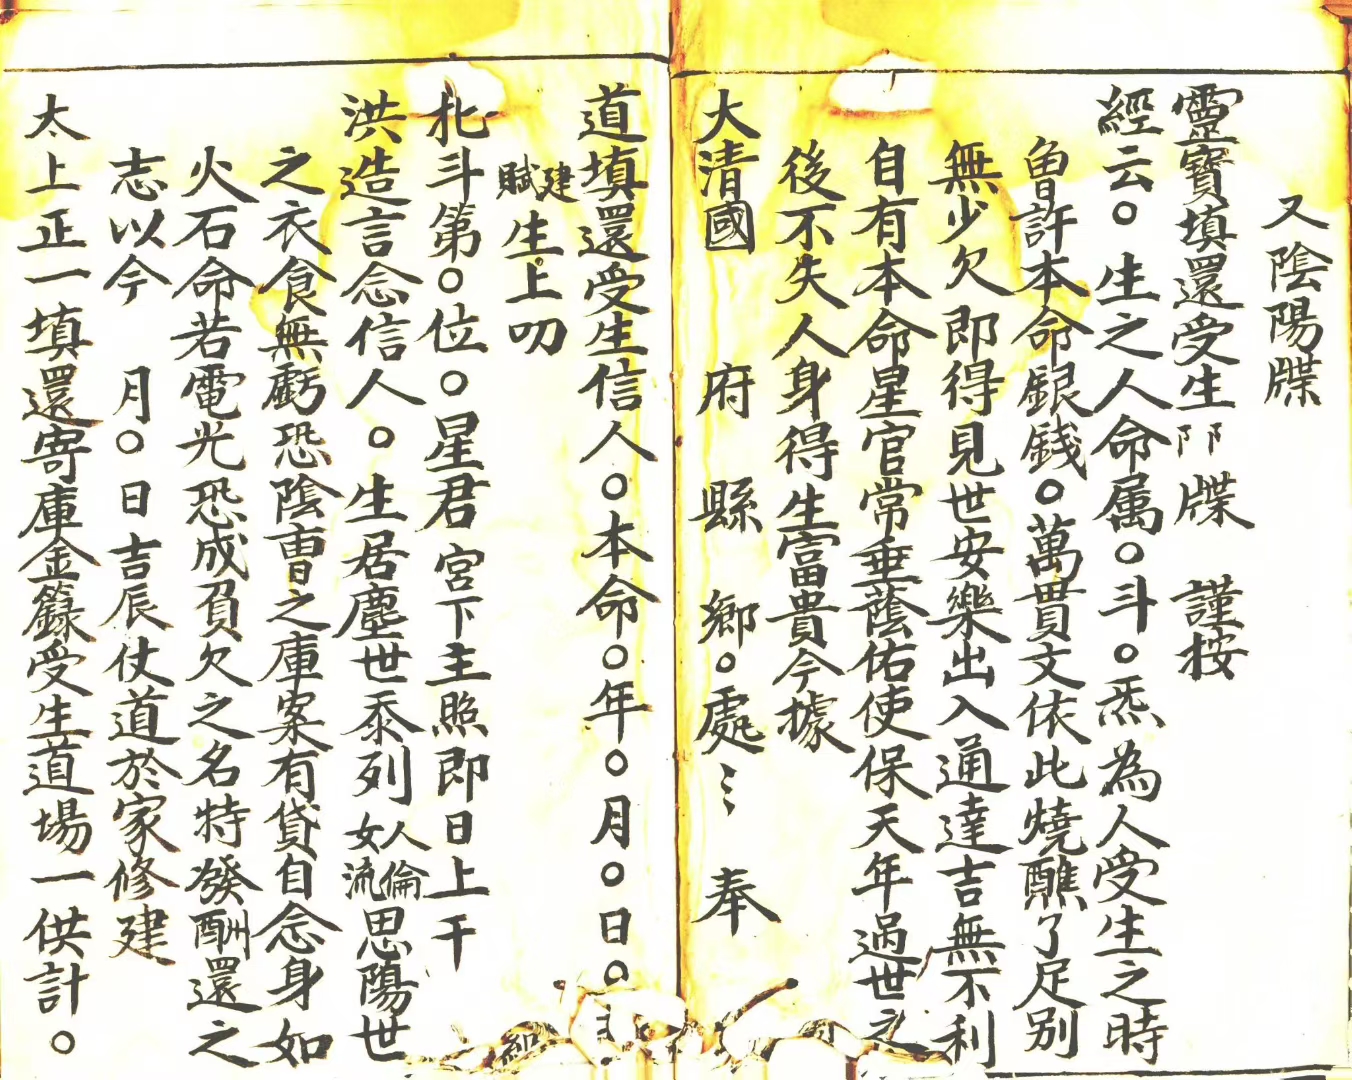 又陰陽牒
靈寶填還受生阝阝牒 謹按
經云○生之人命属○斗○炁為人受生之時
曾許本命銀錢○萬貫文依此燒醮了足别
無少欠即得見世安樂出入通達吉無不利
自有本命星官常垂蔭佑使保天年過世之
後不失人身得生富貴今據
大清國 府 縣 鄉○處〻 奉
道填還受生信人○本命○年○月○日○
建賦生上叨
北斗第○位○星君宮下主照即日上干
洪造言念信人○生居塵世忝列人倫女流思陽世
之衣食無虧恐陰曹之庫案有貸自念身如
火石命若電光恐成負欠之名特發酬還之
志以今 月○日吉辰仗道於家修建
太上正一填還寄庫金籙受生道場一供計○